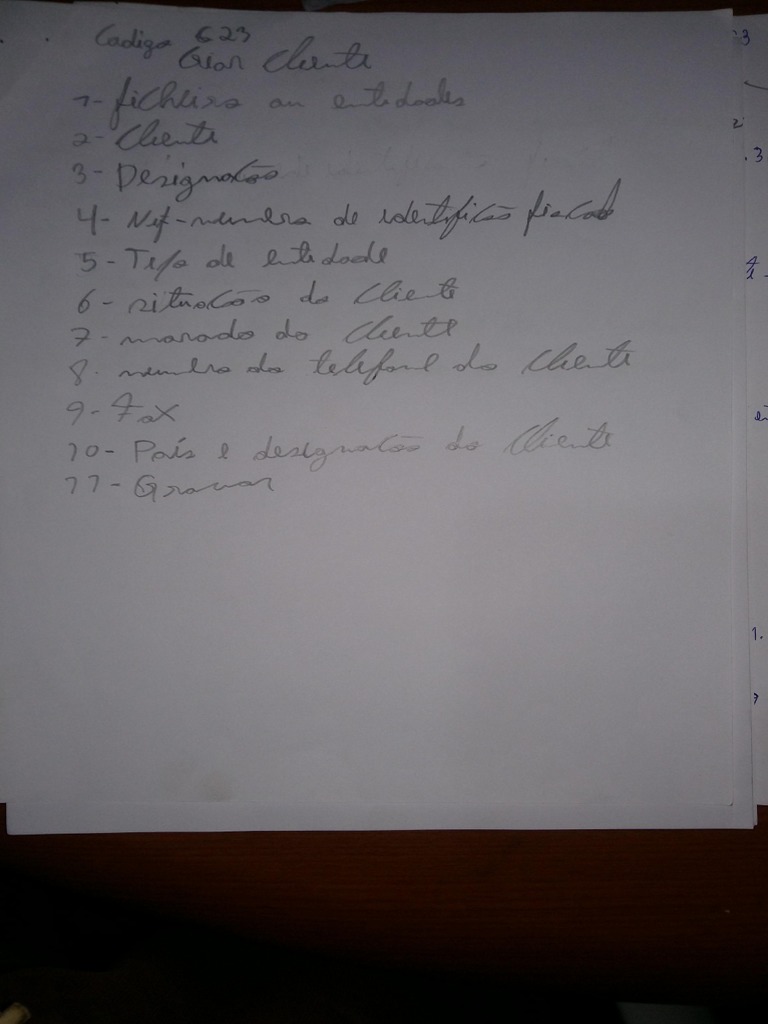 Codigo 623
Criar Cliente
1- ficheiro ou entidades
2- Cliente
3- Designação
4- Nif-numero de identificão fiscal
5- Tipo de entidade
6- situação do Cliente
7- morada do Cliente
8- numero do telefone do Cliente
9- Fax
10- País e designação do Cliente
11- Gravar
3
2
.3
1.